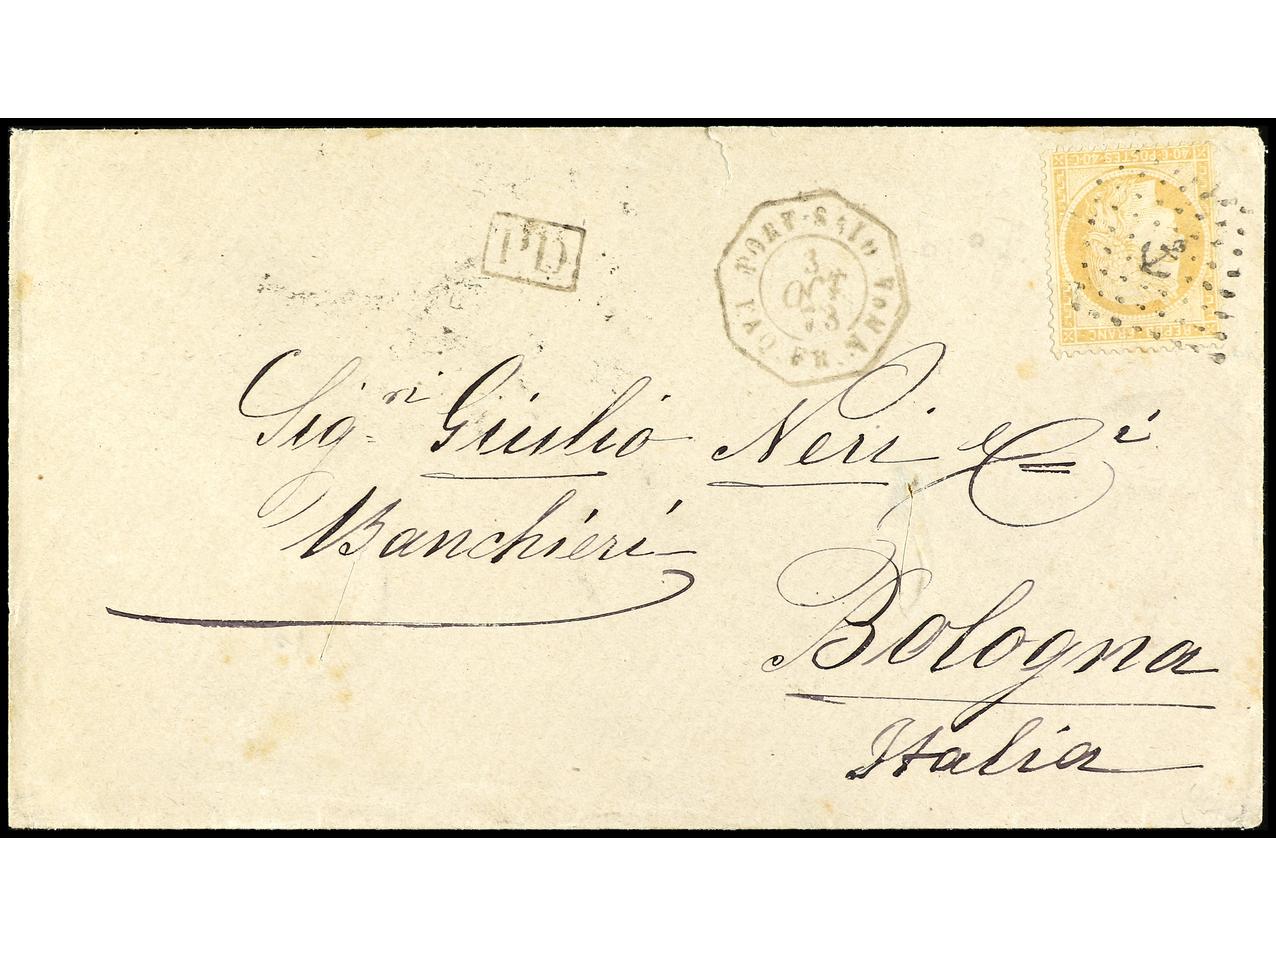 40·C·POSTES·40·C
REPUB·FRANC
PD
PORT-SAID
PAQ. FR. V No 4
3
OCT
73
Sig.ri Giulio Neri & C.i
Banchieri
Bologna
Italia